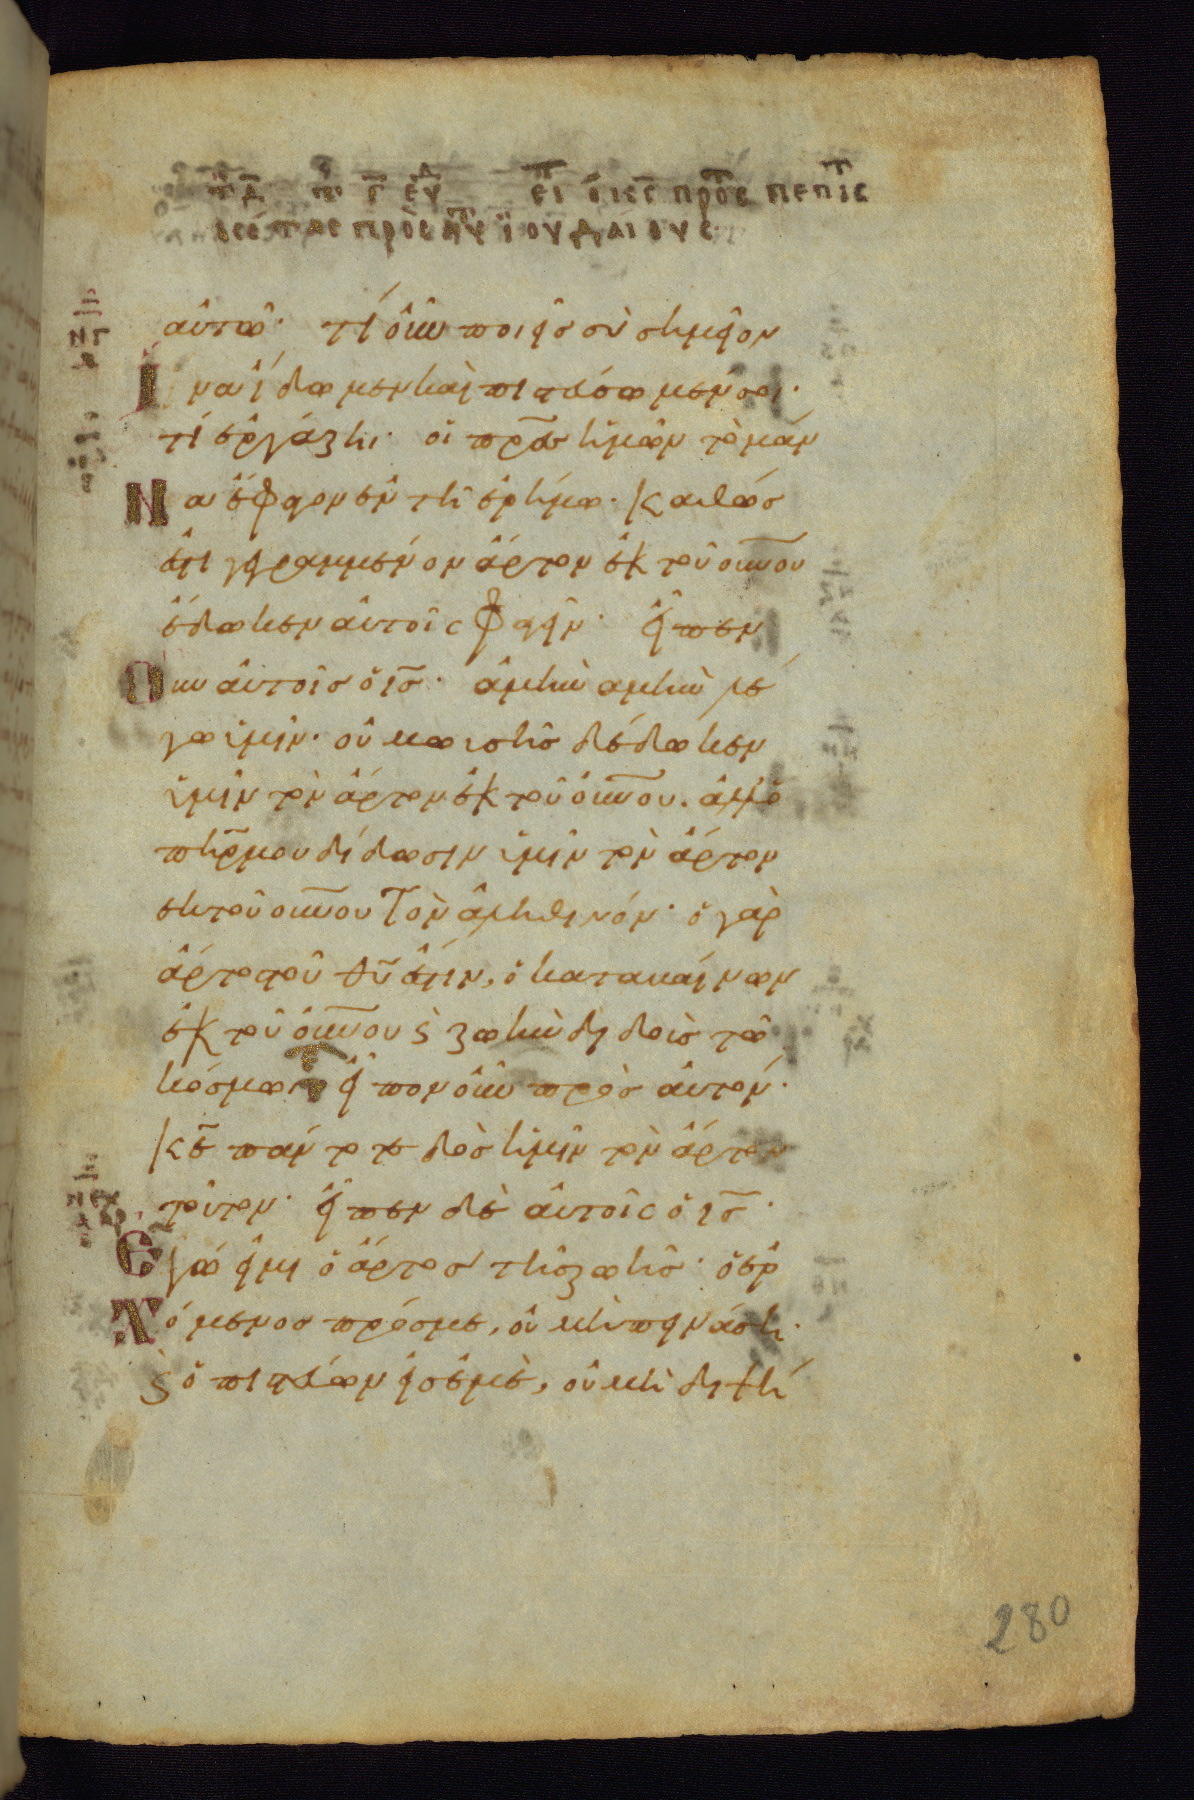 ει ὁ ις προς πεπις
αὐτῶ· τί οὖν ποιεῖς σὺ σημεῖον
ἵνα ἴδωμεν καὶ πιστεύσωμέν σοι·
τί ἐργάζη· οἱ πρ̅ες ἡμῶν τὸ μάν
Να ἔφαγον ἐν τῆ ἐρήμω· καθώς
ἐστι γεγραμμένον ἄρτον ἐκ τοῦ οὐ̅νου
ἔδωκεν αὐτοῖς φαγεῖν· εἶπεν
Οὖν αὐτοῖς ὁ ι̅ς· ἀμὴν ἀμὴν λέ
γω ὑμῖν· οὐ μωϋσῆς δέδωκεν
ὑμῖν τὸν ἄρτον ἐκ τοῦ οὐ̅νου. ἀλλ ὁ
πη̅ρ μου δίδωσιν ὑμῖν τὸν ἄρτον
ἐκ τοῦ οὐ̅νου τὸν ἀληθινόν· ὁ γὰρ
ἄρτος τοῦ θ̅υ ἐστιν, ὁ καταβαίνων
ἐκ τοῦ οὐ̅νου ϗ ζωὴν διδοὺς τῶ
κόσμω· εἶπον οὖν πρὸς αὐτόν·
κ̅ε πάντοτε δὸς ἡμῖν τὸν ἄρτον
τοῦτον· εἶπεν δὲ αὐτοῖς ὁ ι̅ς·
Ἐγώ εἰμι ὁ ἄρτος τῆς ζωῆς· ὁ ἐρ
Χόμενος πρός με, οὐ μὴ πεινάση·
ϗ ὁ πιστεύων εἰς ἐμὲ, οὐ μὴ διψή
280